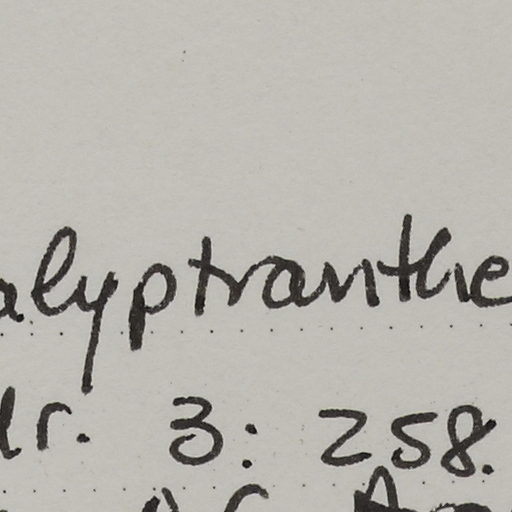 alyptranthe
dr. 3: 258.